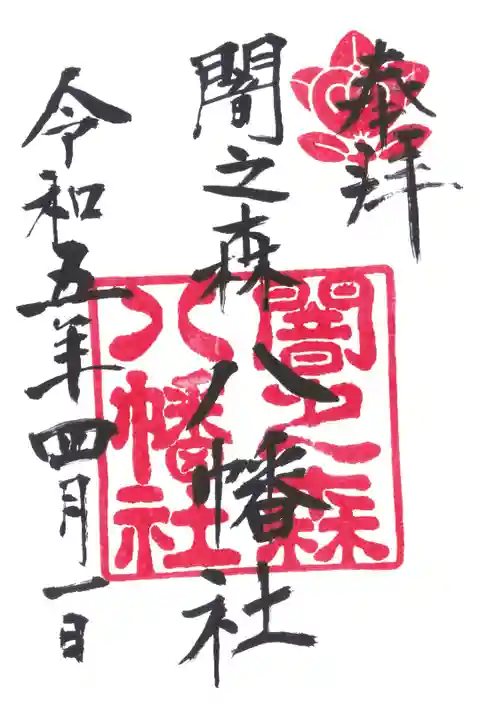 奉拝
闇之森八幡社
闇之森
八幡社
令和五年四月一日